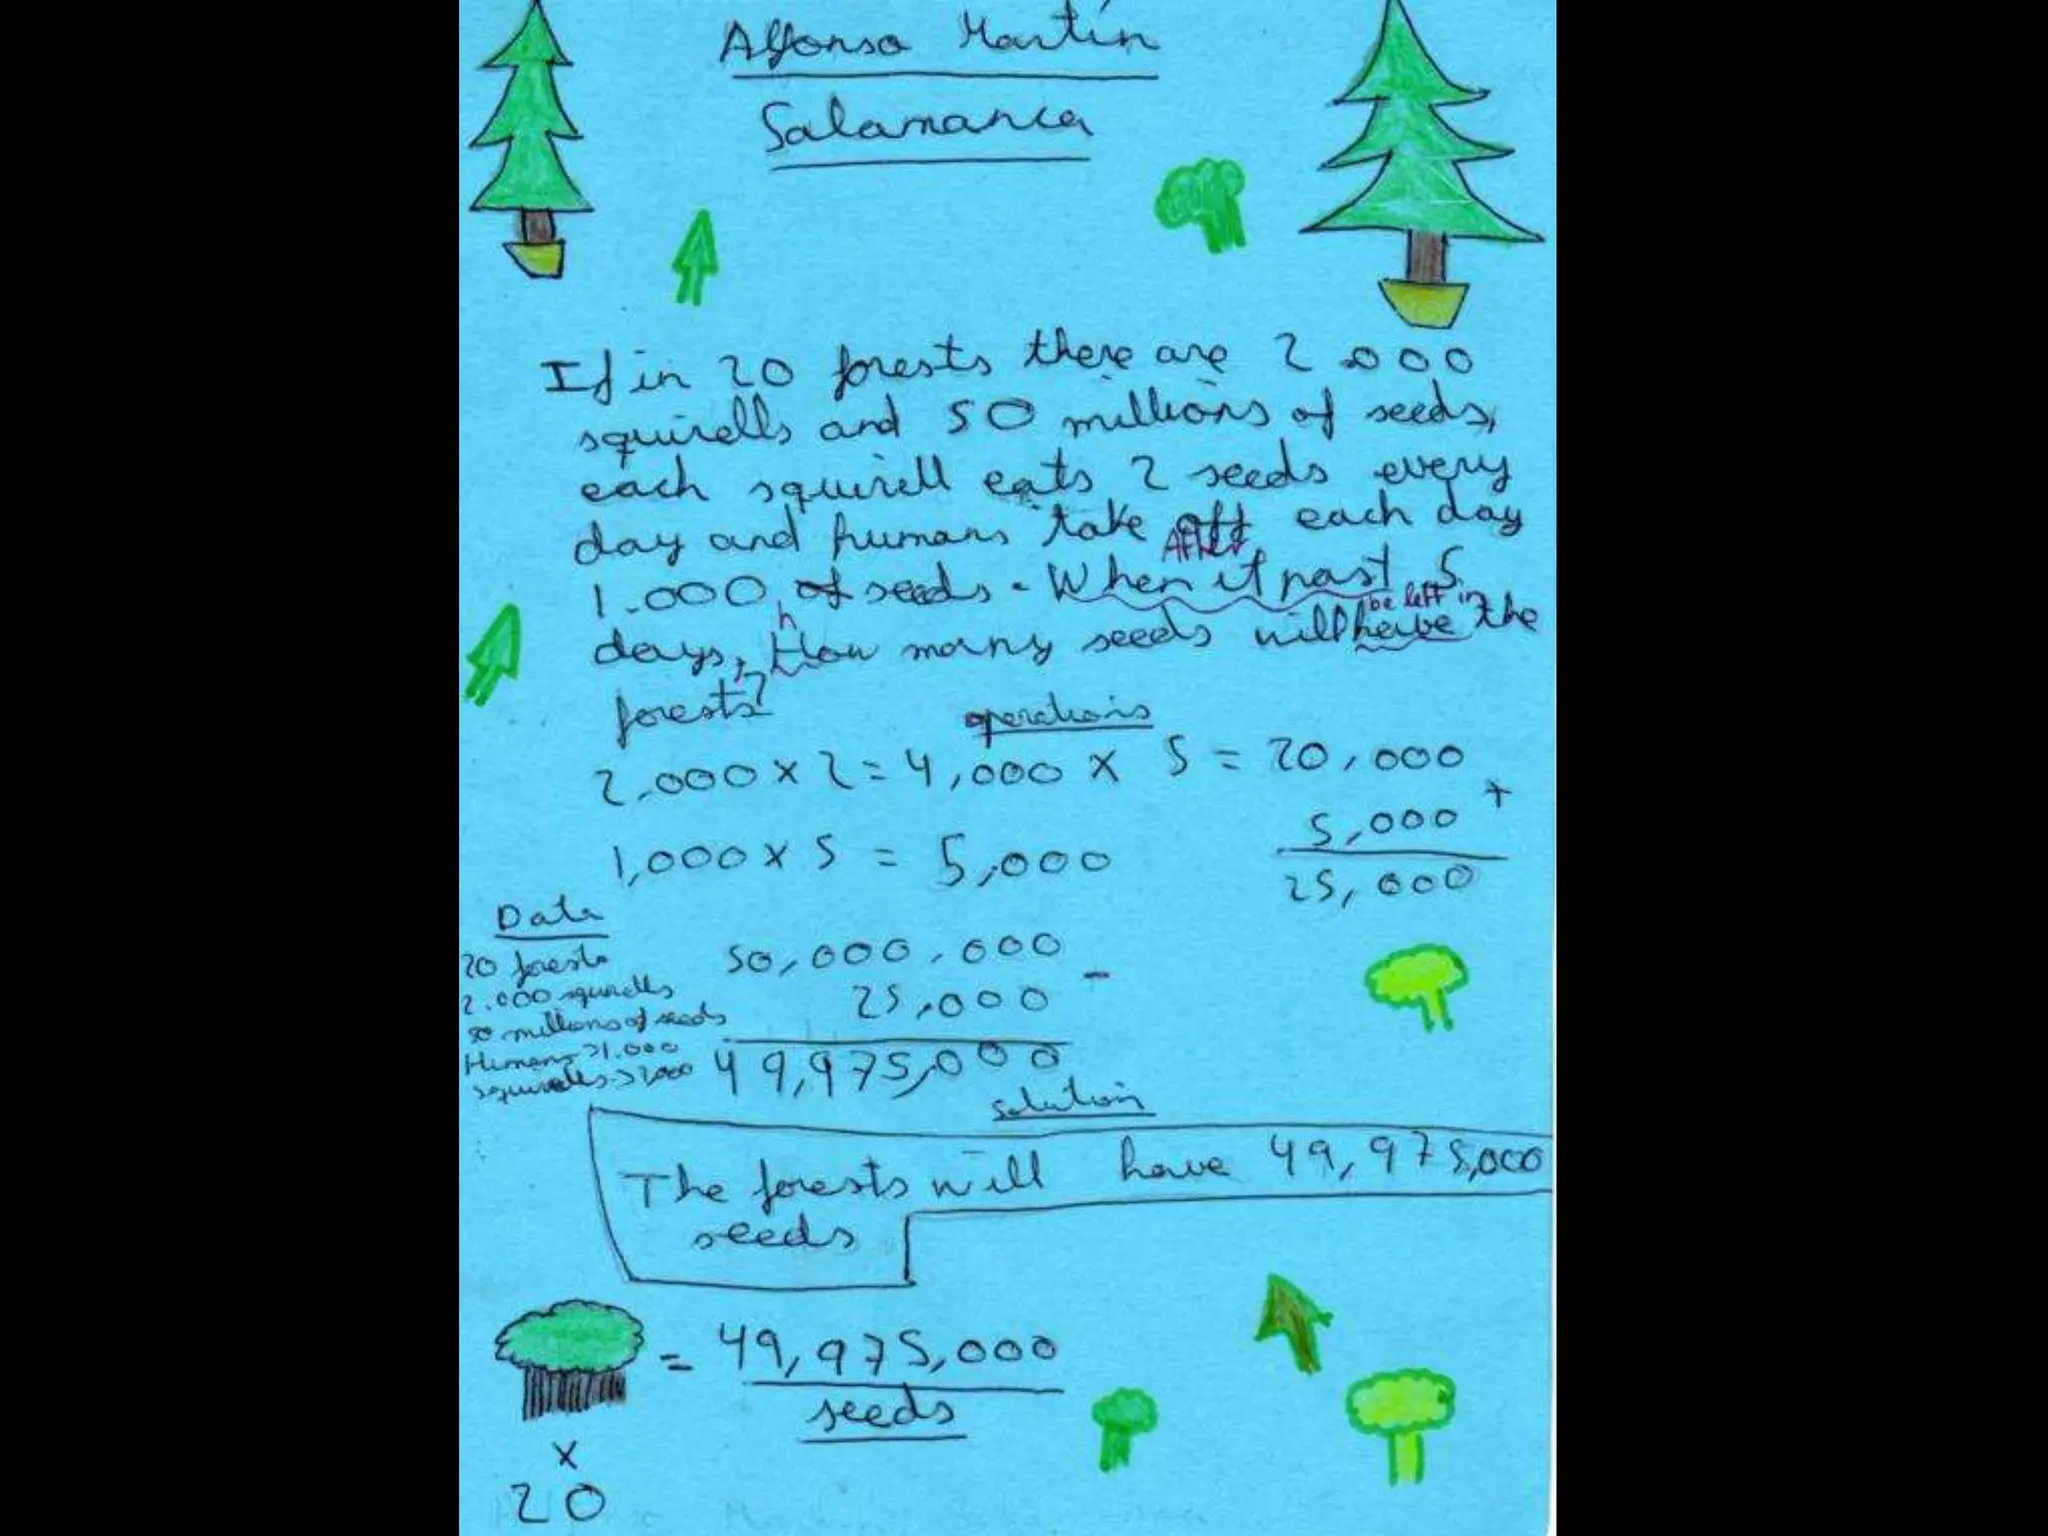 Alfonso Martín
Salamanca
If in 20 forests there are 2.000
squirells and 50 millions of seeds,
each squirell eats 2 seeds every
day and humans take off each day
After
1.000 of seeds. When it past 5
be left in
h
days, How many seeds will have the
forests?
operations
2.000 x 2 = 4,000 x 5 = 20,000
5,000 +
1,000 x 5 = 5,000
25,000
Data
20 forests
2.000 squirells
50 millions of seeds
Humans > 1.000
squirells > 2,000
50,000,000
25,000 -
49,975,000
solution
The forests will have 49,975,000
seeds
= 49,975,000
seeds
x
20